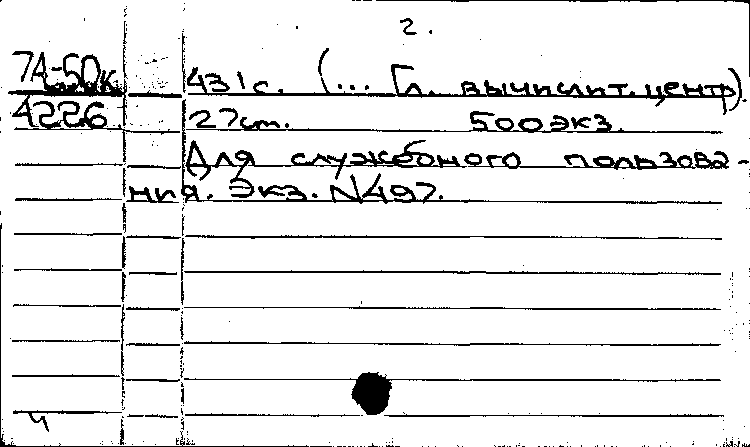 2.
7А-50к 431с. (... Гл. вычислит. центр).
4226 27cm. 500экз.
Для служебного пользова-
ния. Экз. N497.
ч